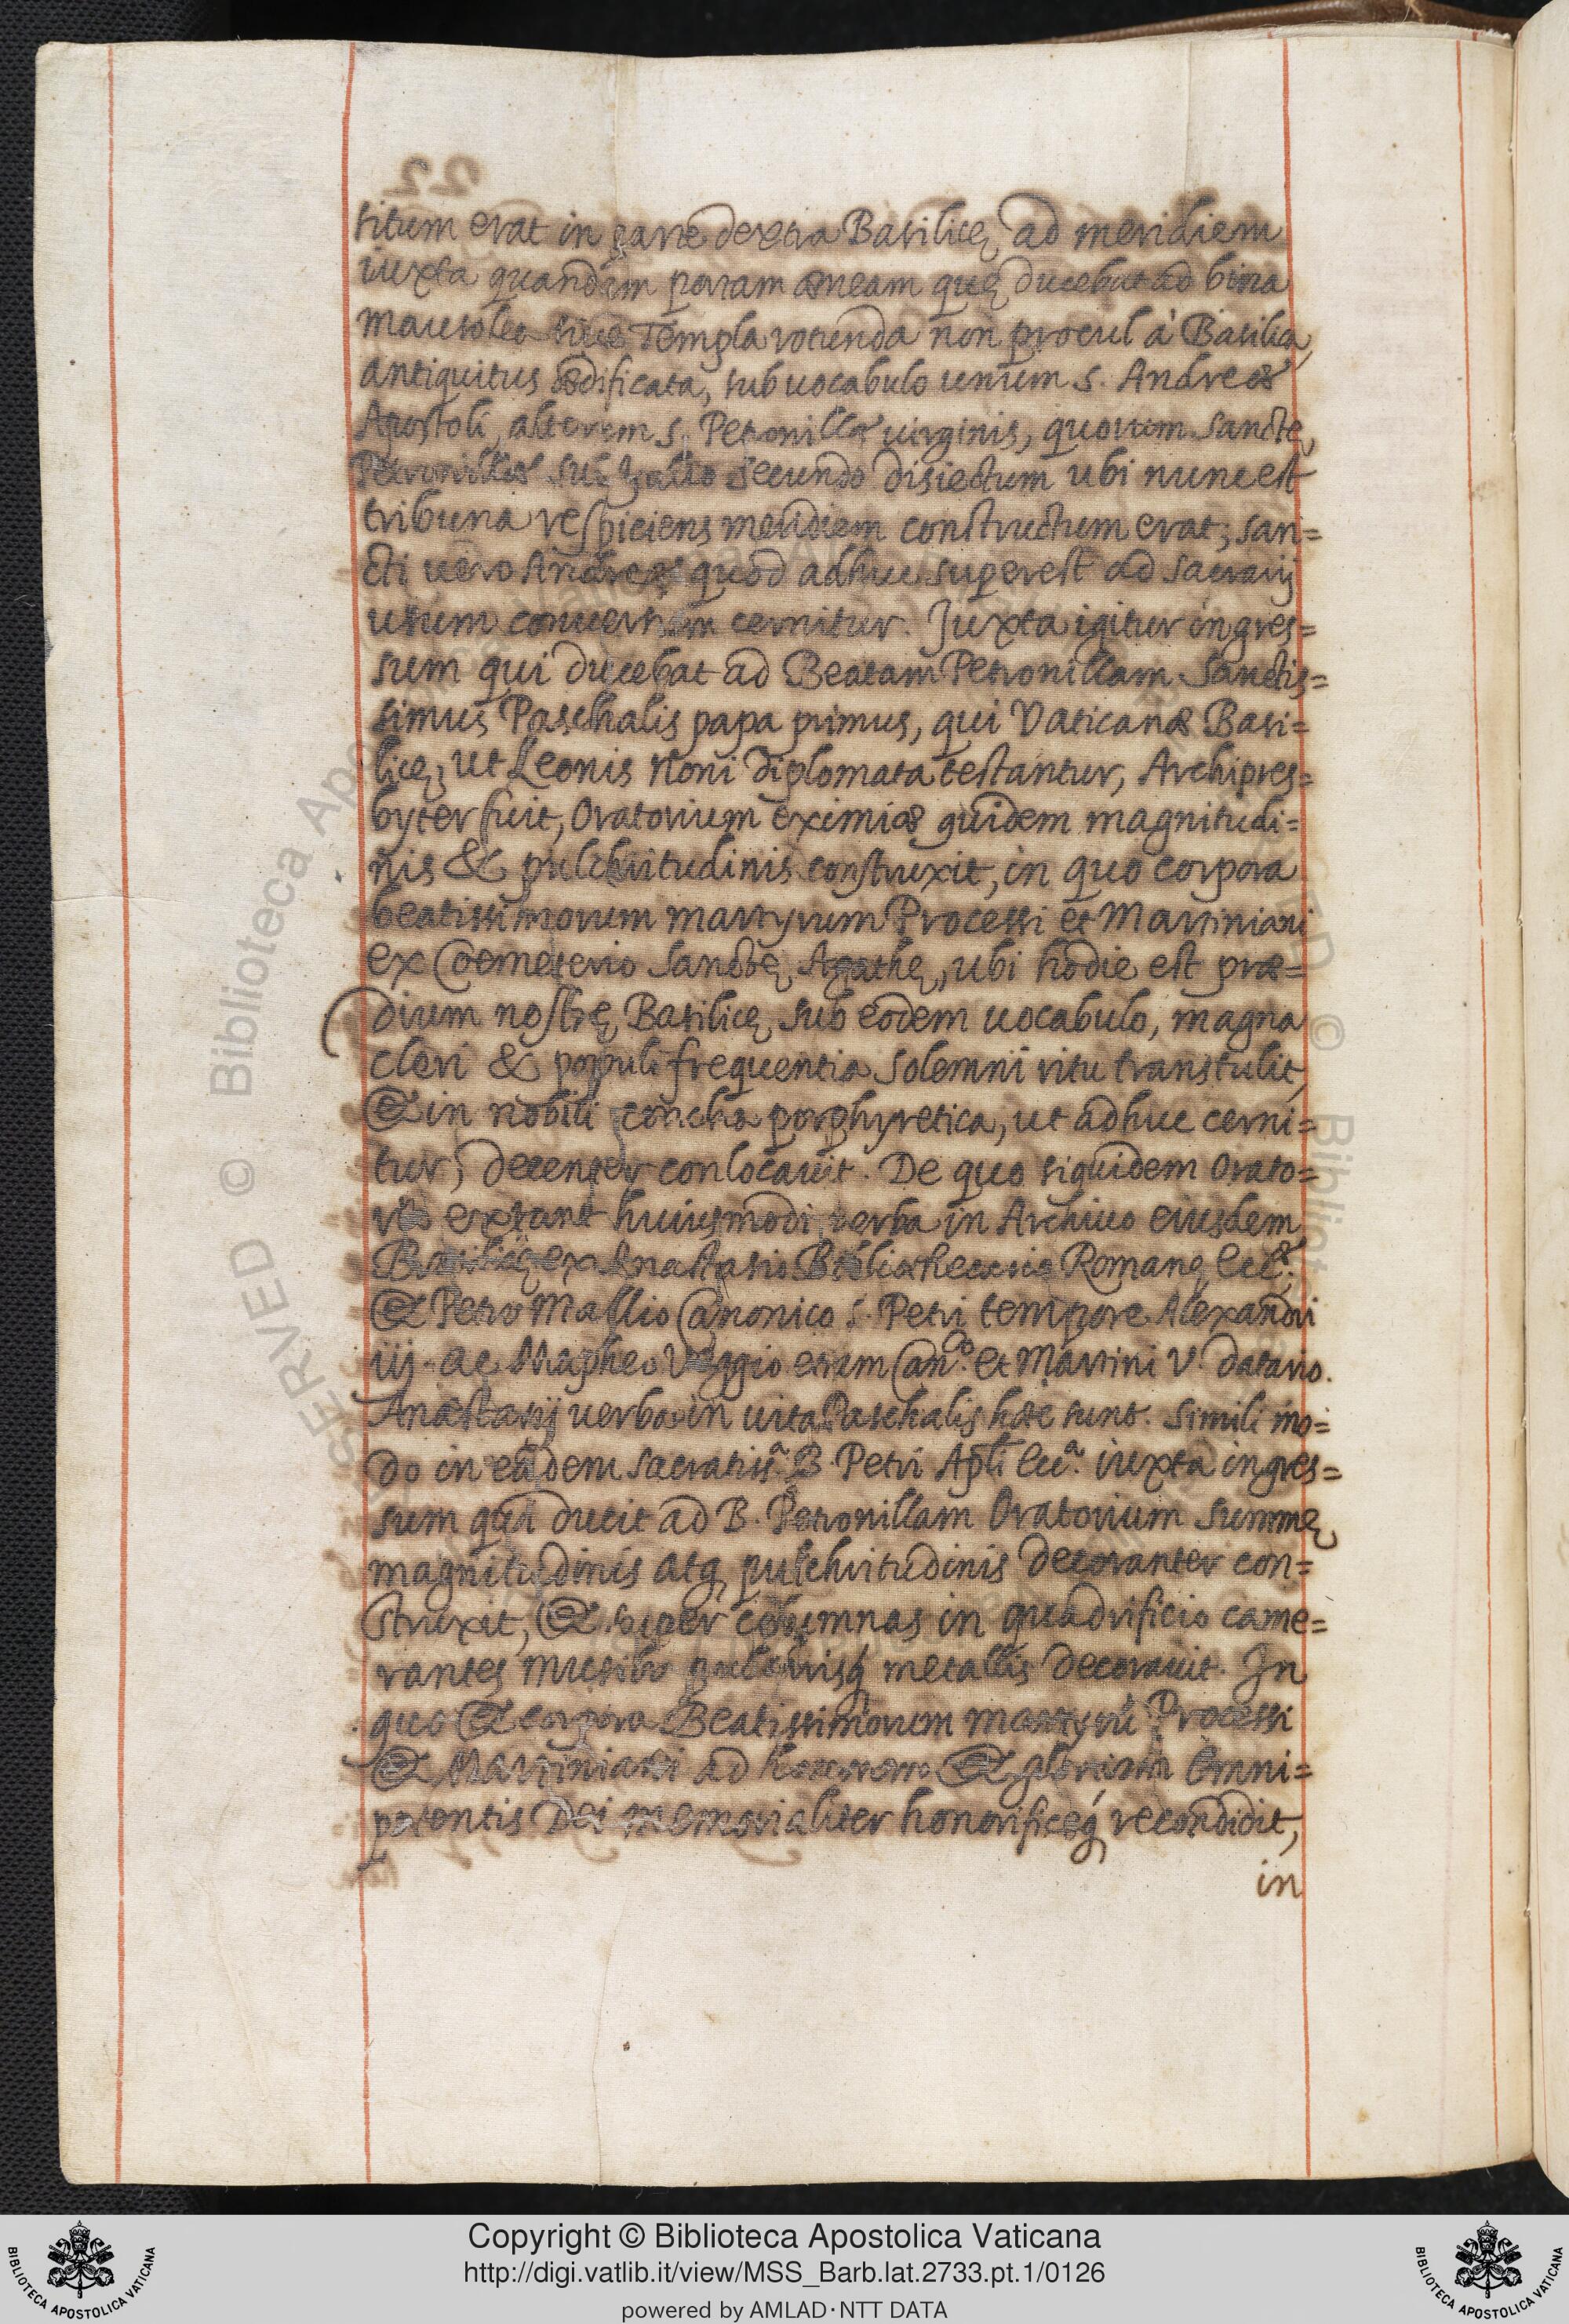 situm erat in parte dextra Basilicę ad meridiem
iuxta quandam portam æneam quę ducebat ad bina
mausolea siue Templa rotunda non procul à Basilica
antiquitus ædificata, sub uocabulo unum S. Andreæ
Apostoli, alterum S. Petronillæ uirginis, quorum Sanctę
Petronillæ sub Iulio Secundo disiectum ubi nunc est
tribuna respiciens meridiem constructum erat; san=
cti uero Andreæ quod adhuc superest ad sacrarij
usum conuersum cernitur. Juxta igitur ingres=
sum qui ducebat ad Beatam Petronillam Sanctis=
simus Paschalis papa primus, qui Vaticanæ Basi=
licę, ut Leonis Noni diplomata testantur, Archipres=
byter fuit, Oratorium eximiæ quidem magnitudi=
nis & pulchritudinis construxit, in quo corpora
beatissimorum martyrum Processi et Martiniani
ex Coemeterio Sanctę Agathę, ubi hodie est præ=
dium nostrę Basilicę sub eodem uocabulo, magna
cleri & populi frequentia solemni ritu transtulit,
& in nobili concha porphyretica, ut adhuc cerni=
tur, decenter conlocauit. De quo siquidem Orato=
rio extant huiusmodi verba in Archiuo eiusdem
Basilicę ex Anastasio Bibliothecario Romanę Eccᵉ.
& Petro Mallio Canonico S. Petri tempore Alexandri
iij. ac Mapheo Veggio etiam Canᶜᵒ. et Martini V. datario.
Anastasij uerba in uita Paschalis hæc sunt. Simili mo=
do in eadem sacratissᵃ. B. Petri Apłi Eccᵃ. iuxta ingres=
sum qui ducit ad B. Petronillam Oratorium summę
magnitudinis atq pulchritudinis decoranter con=
struxit, & super columnas in quadrificio came=
rantes musibo pulchrisq metallis decorauit. In
quo & corpora Beatissimorum martyrū Processi
& Martiniani ad honorem & gloriam Omni=
potentis Dei memorialiter honorificeq́ recondidit,
in
Copyright © Biblioteca Apostolica Vaticana
http://digi.vatlib.it/view/MSS_Barb.lat.2733.pt.1/0126
powered by AMLAD·NTT DATA
BIBLIOTECA APOSTOLICA VATICANA
BIBLIOTECA APOSTOLICA VATICANA